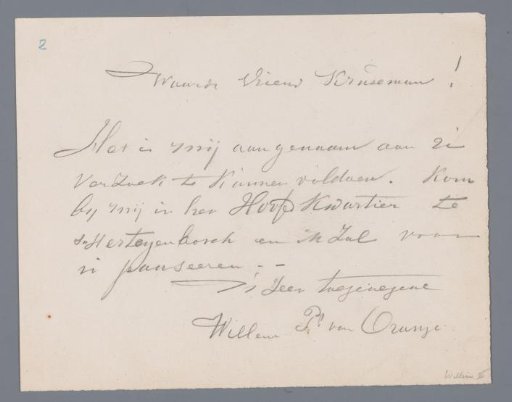 2
Waarde Vriend Kruseman!
Het is mij aangenaam aan U
verzoek te kunnen voldoen. Kom
by mij in het Hoofd Kwartier te
s-Hertogenbosch en ik zal voor
U pauseeren. --
Zeer toegenegene
Willem Ps van Oranje
Willem II